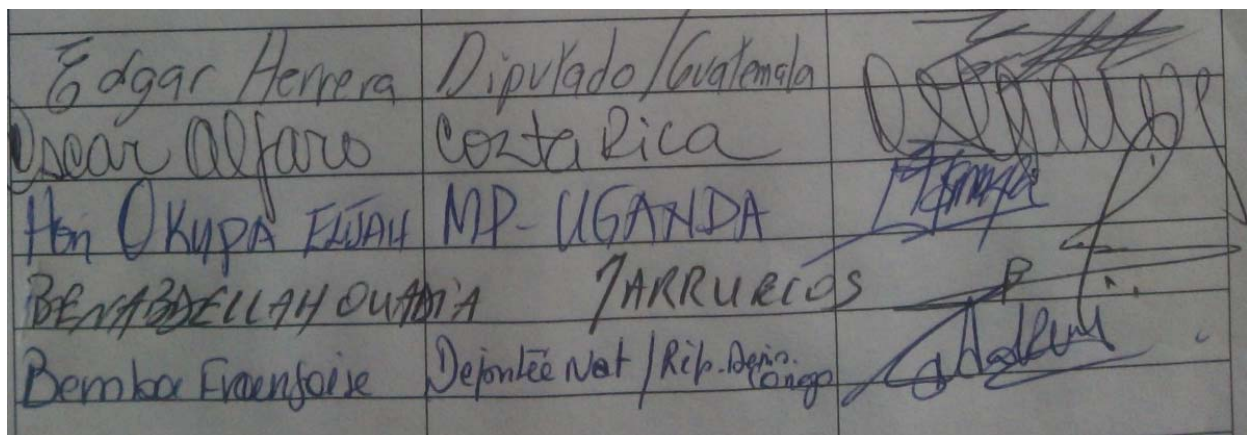 Edgar Herrera Diputado/Guatemala
Oscar Alfaro Cozta Rica
Hon Okupa ELIJAH MP-UGANDA
BENABDELLAH OUADIA MARRUECOS
Bemba Françoise Députée Nat/Rép. Dém. Congo